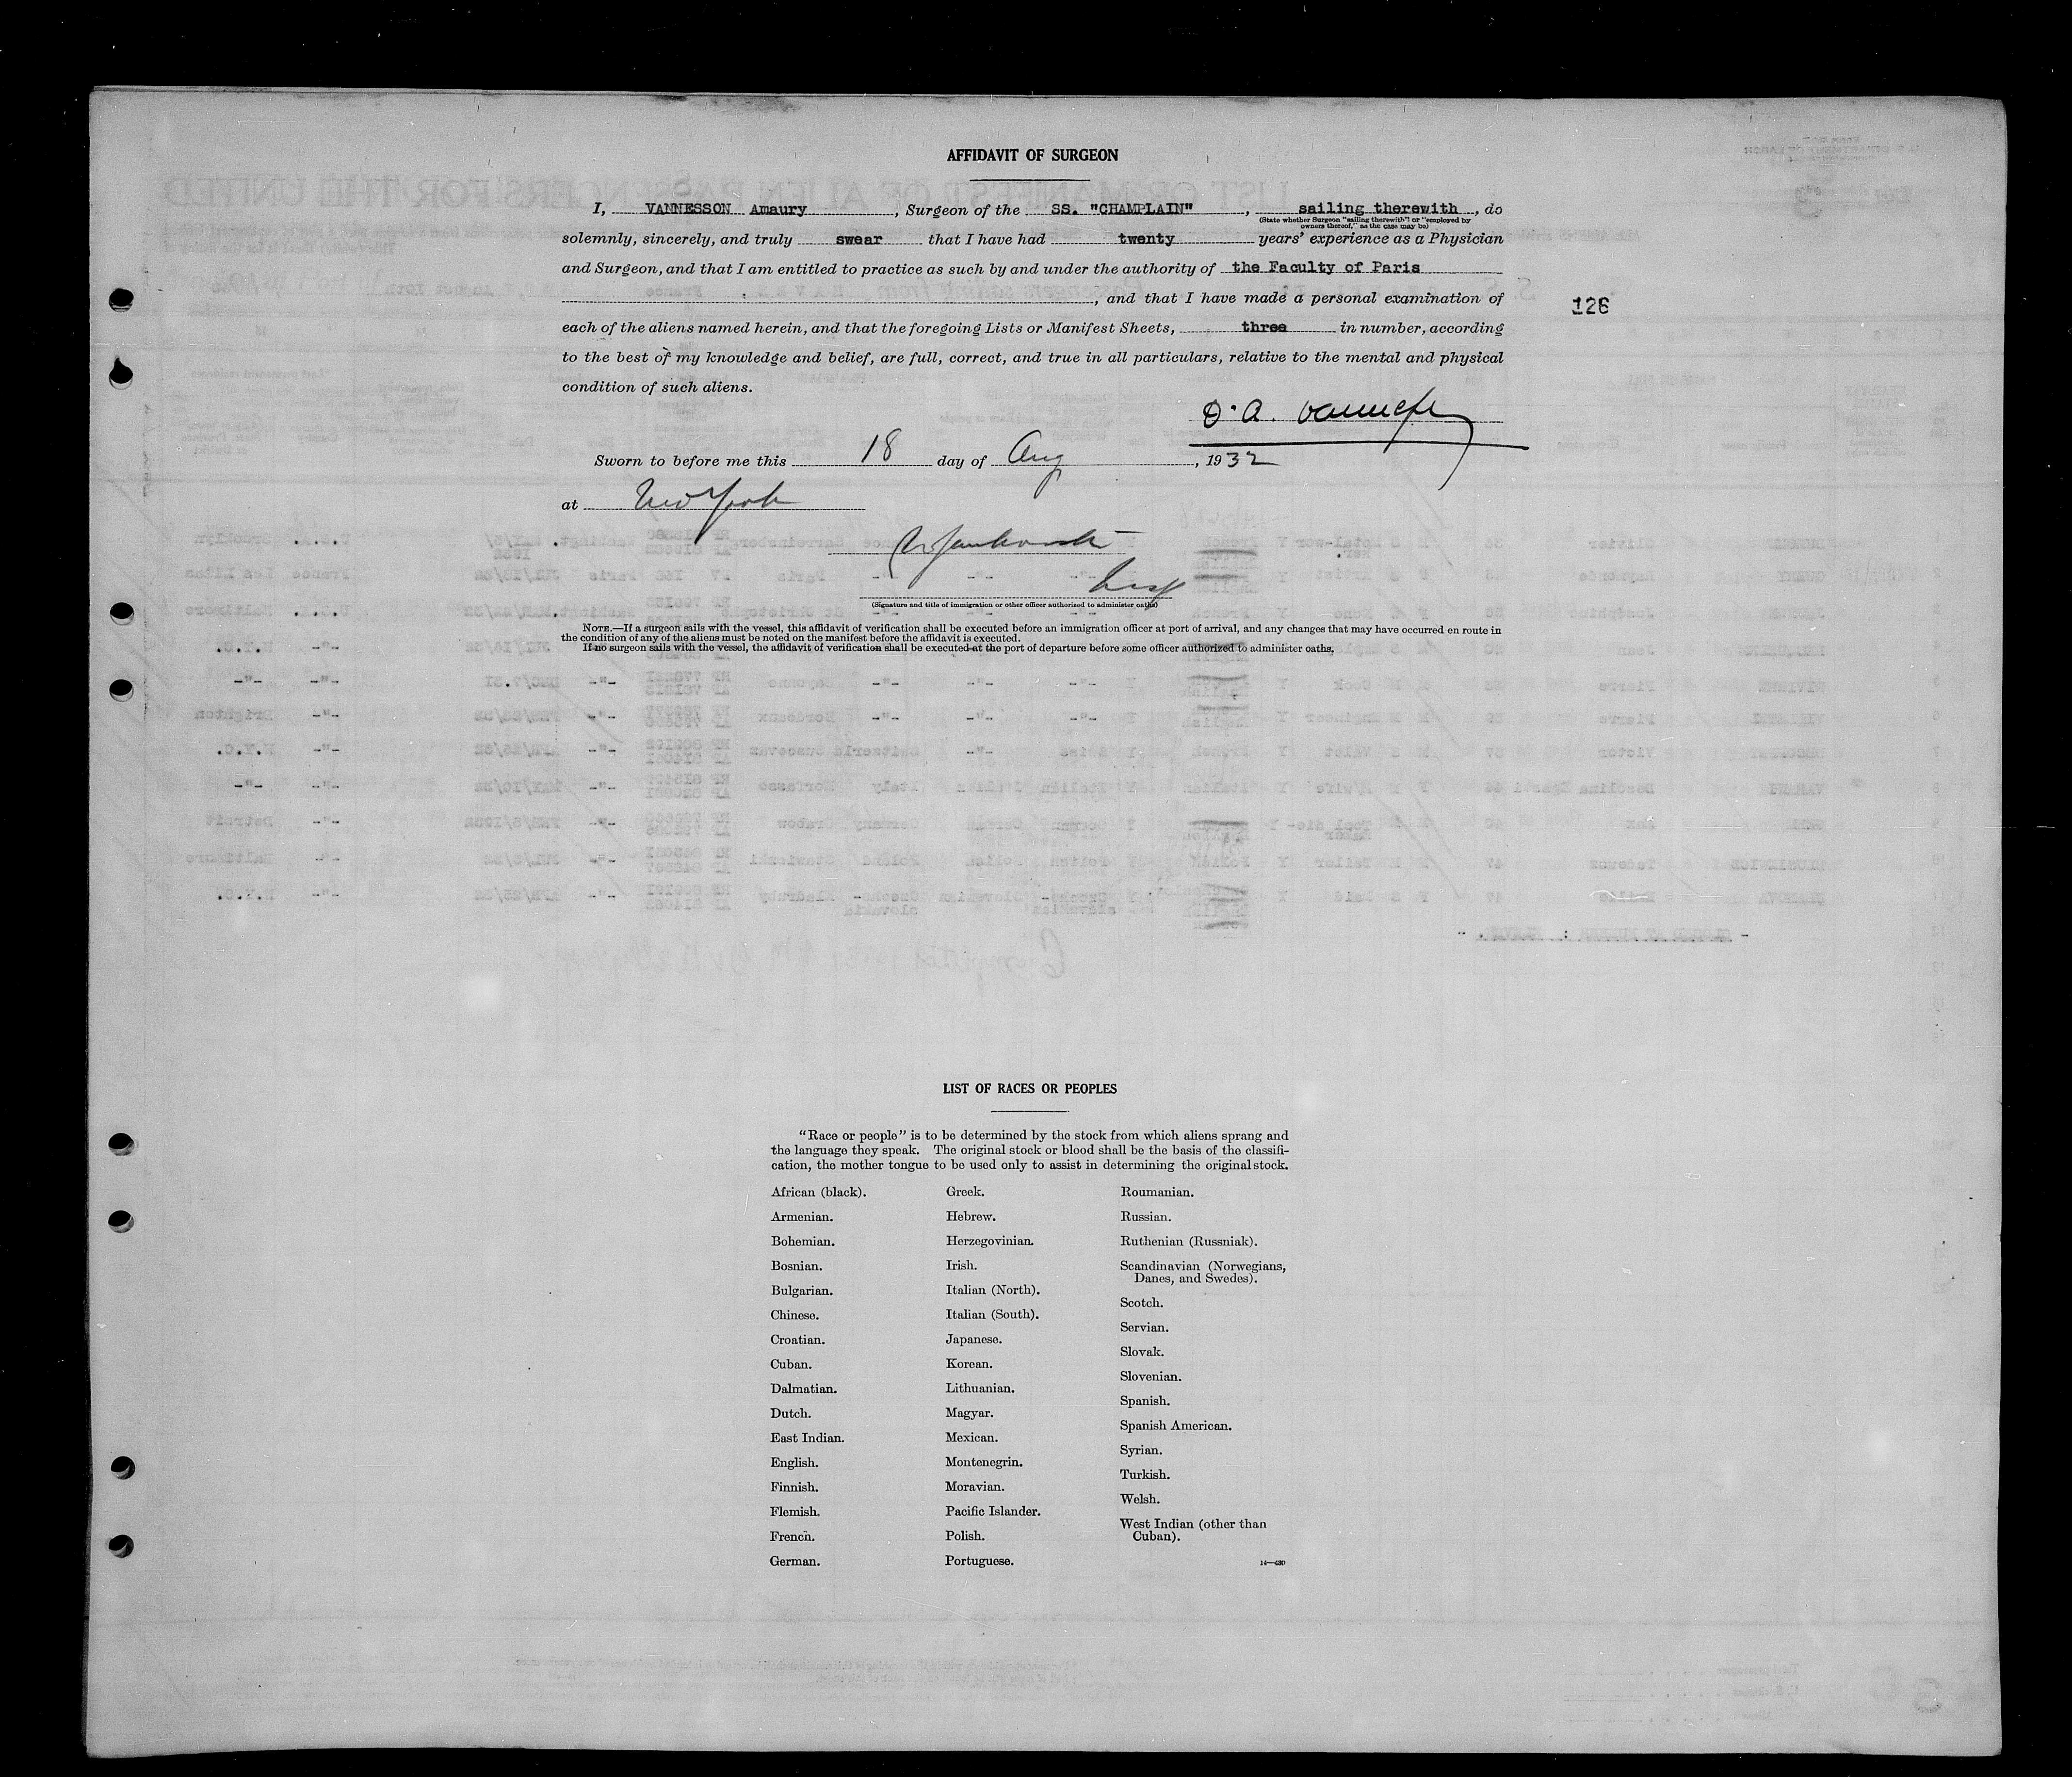 AFFIDAVIT OF SURGEON
I, VANNESSON Amaury, Surgeon of the SS. "CHAMPLAIN", sailing therewith, do
(State whether Surgeon "sailing therewith" or "employed by
owners thereof," as the case may be)
solemnly, sincerely, and truly swear that I have had twenty years' experience as a Physician
and Surgeon, and that I am entitled to practice as such by and under the authority of the Faculty of Paris
, and that I have made a personal examination of
126
each of the aliens named herein, and that the foregoing Lists or Manifest Sheets, three in number, according
to the best of my knowledge and belief, are full, correct, and true in all particulars, relative to the mental and physical
condition of such aliens.
Sworn to before me this 18 day of Aug, 1932
at New York
(Signature and title of immigration or other officer authorized to administer oaths)
NOTE.—If a surgeon sails with the vessel, this affidavit of verification shall be executed before an immigration officer at port of arrival, and any changes that may have occurred en route in
the condition of any of the aliens must be noted on the manifest before the affidavit is executed.
If no surgeon sails with the vessel, the affidavit of verification shall be executed at the port of departure before some officer authorized to administer oaths.
LIST OF RACES OR PEOPLES
"Race or people" is to be determined by the stock from which aliens sprang and
the language they speak. The original stock or blood shall be the basis of the classifi-
cation, the mother tongue to be used only to assist in determining the original stock.
African (black).
Armenian.
Bohemian.
Bosnian.
Bulgarian.
Chinese.
Croatian.
Cuban.
Dalmatian.
Dutch.
East Indian.
English.
Finnish.
Flemish.
French.
German.
Greek.
Hebrew.
Herzegovinian.
Irish.
Italian (North).
Italian (South).
Japanese.
Korean.
Lithuanian.
Magyar.
Mexican.
Montenegrin.
Moravian.
Pacific Islander.
Polish.
Portuguese.
Roumanian.
Russian.
Ruthenian (Russniak).
Scandinavian (Norwegians,
Danes, and Swedes).
Scotch.
Servian.
Slovak.
Slovenian.
Spanish.
Spanish American.
Syrian.
Turkish.
Welsh.
West Indian (other than
Cuban).